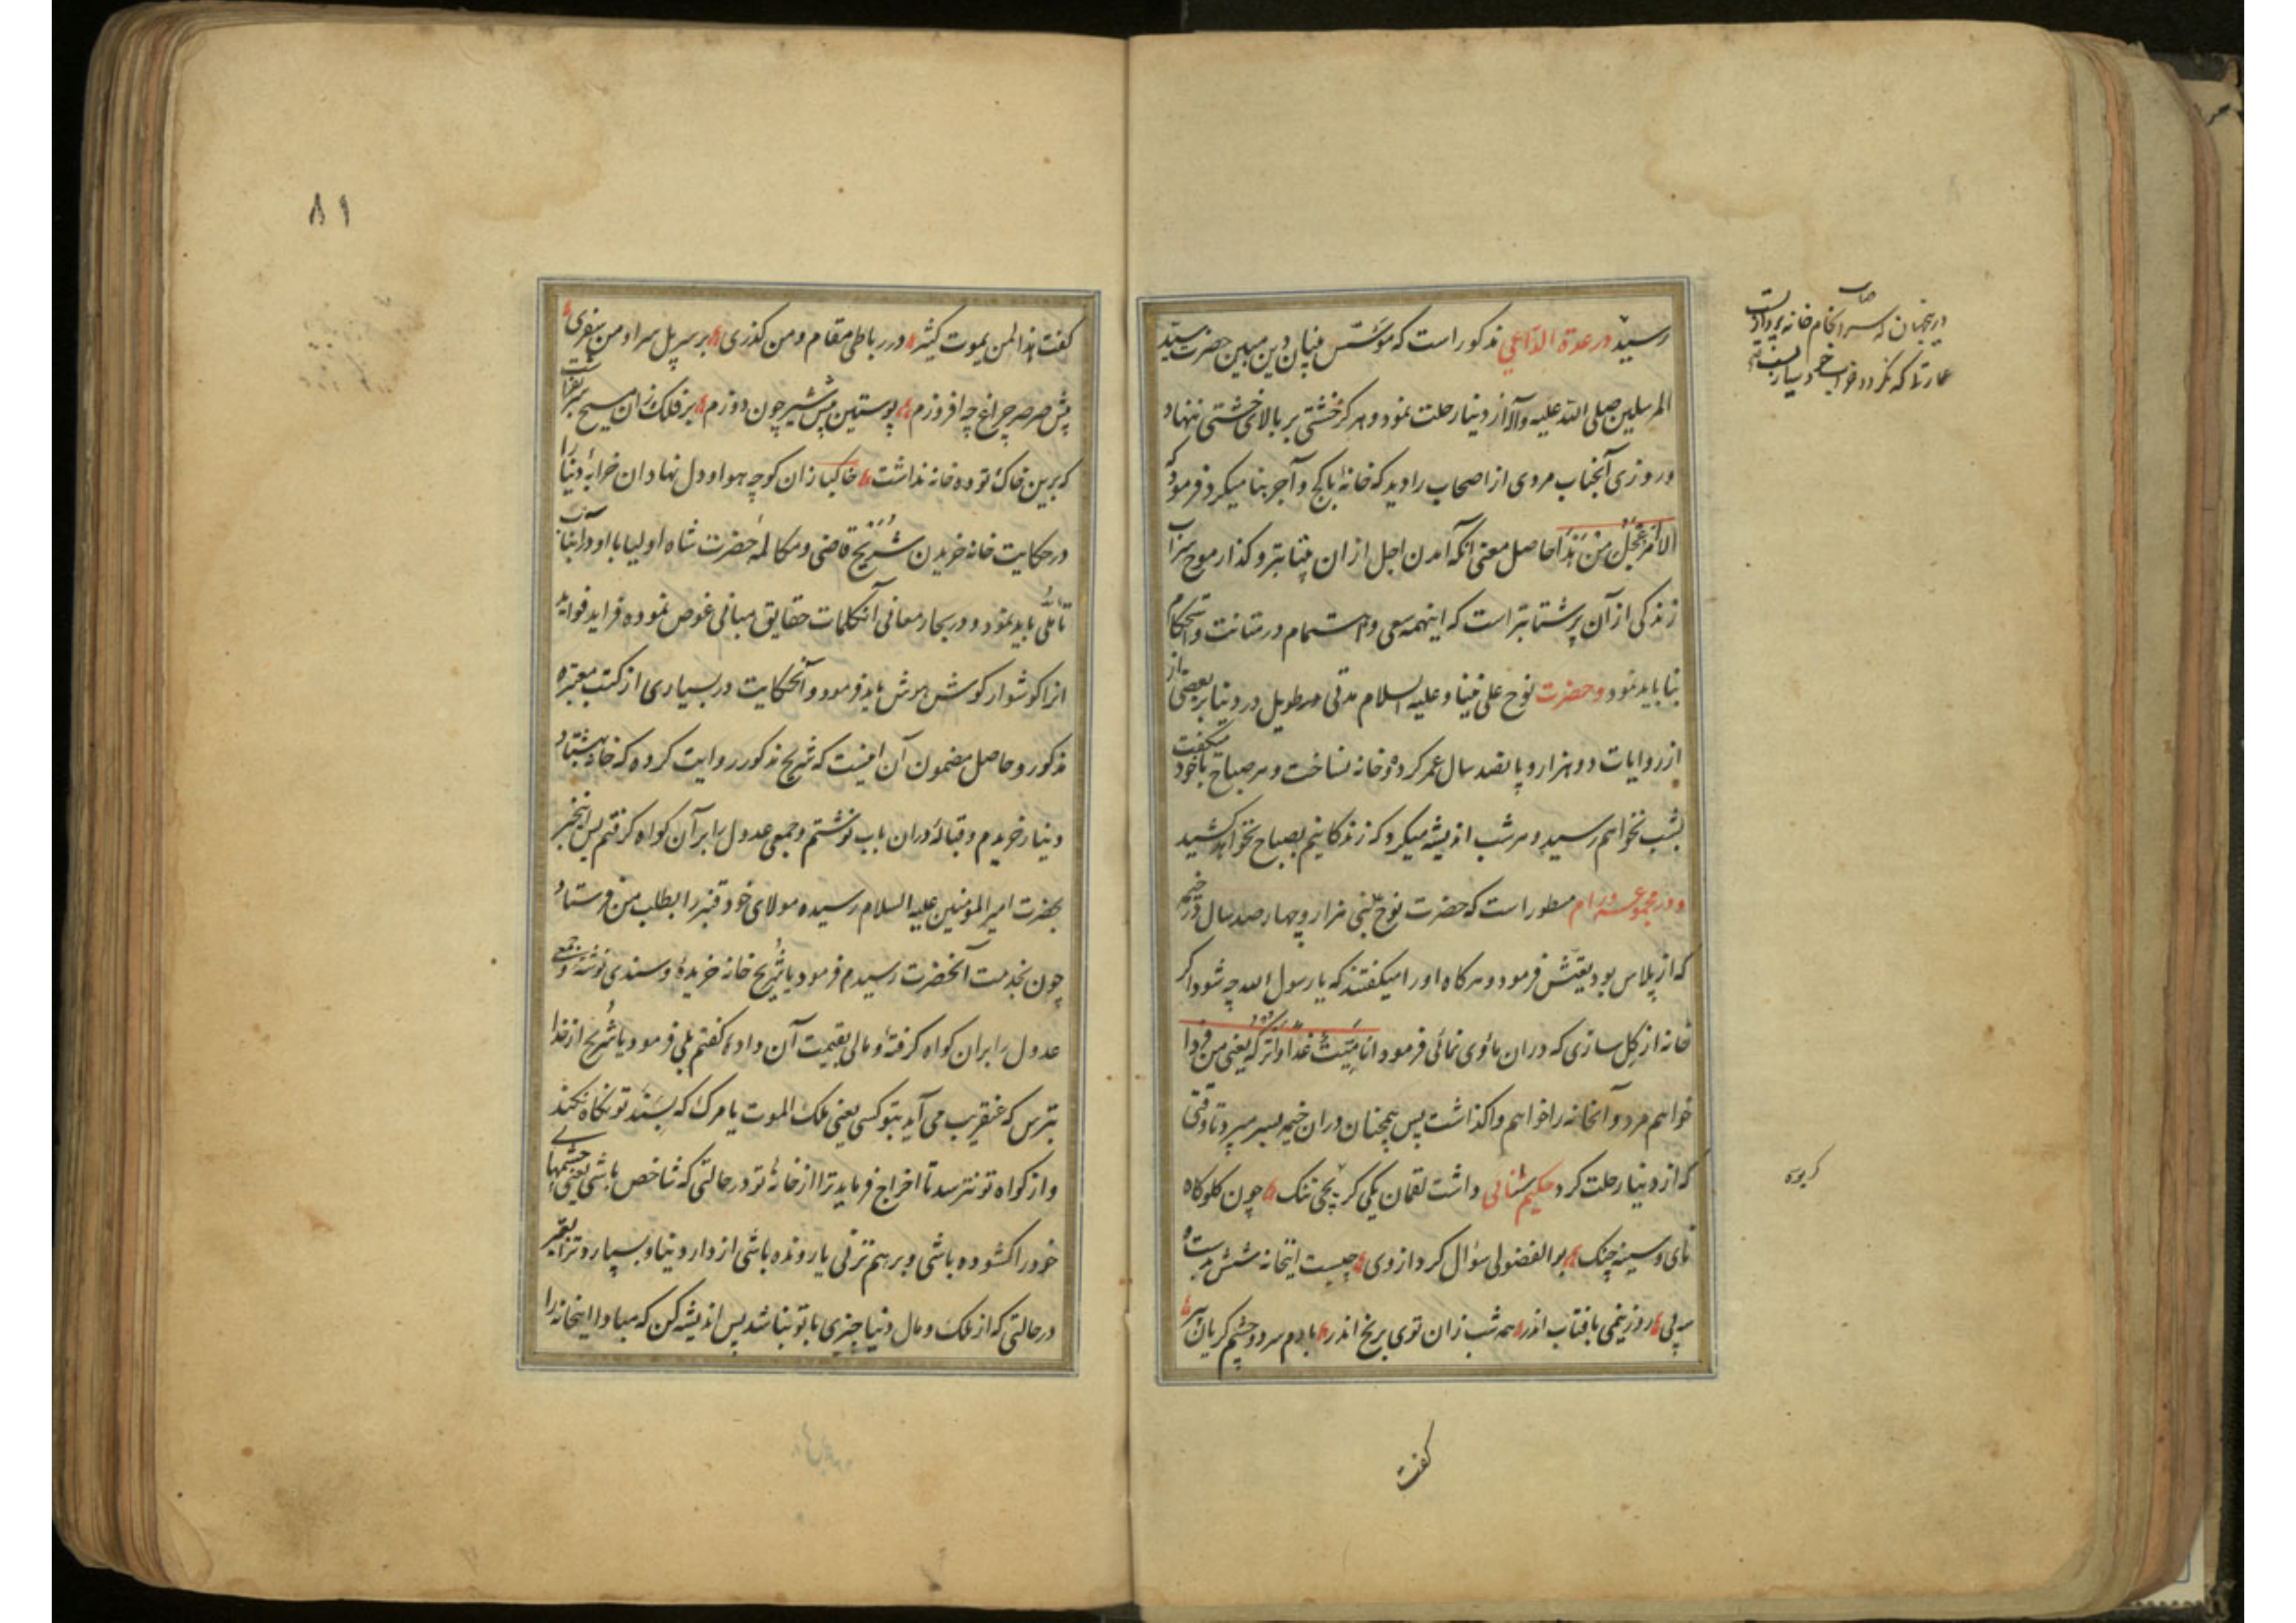 رسید در عدة الداعی مذکور است که مؤسس بنیان دین مبین حضرت سید
المرسلین صلی الله علیه وآله از دنیا رحلت نمود و هرگز خشتی بر بالای خشتی ننهاد
و روزی آنجناب مردی از اصحاب را دید که خانهٔ با گچ و آجر بنا میکرد فرمود که
الامر اعجل من هذا حاصل معنی آنکه آمدن اجل ازان شتابتر و گذار موج سراب
زندگی از آن پرشتابتر است که اینهمه سعی و اهتمام در متانت و استحکام
بنا باید نمود و حضرت نوح علی نبینا و علیه السلام مدتی طویل در دنیا بر بعضی از
از روایات دو هزار و پانصد سال عمر کرد و خانه نساخت و هر صباح با خود میگفت
بشب نخواهم رسید و هر شب اندیشه میکرد که زندگانیم بصباح نخواهد کشید
و در مجموعه ورام مسطور است که حضرت نوح نبی هزار و چهار صد سال در خیمه
که از پلاس بود تعیش فرمود و هرگاه او را میگفتند که یا رسول الله چه شود اگر
خانه از گل سازی که دران مأوی نمائی فرمود انا میت غدا و اترکه یعنی من فردا
خواهم مرد و آنخانه را خواهم واگذاشت پس همچنان دران خیمه بسر میبرد تا وقتی
که از دنیا رحلت کرد حکیم سنائی داشت لقمان یکی کریچی تنگ چون گلوگاه
نای و سینه چنگ بوالفضولی سؤال کرد از وی چیست اینخانه شش بدست و
سه پی روز نیمی بافتاب اندر همه شب زان توی برنج اندر با دم سرد و چشم گریان پیر
گفت
در جهان که سرانجام خانه پردازیست
عمارتیکه نگردد خراب
کریوه
۸۱
گفت هذا لمن یموت کثیر در رباطی مقام و من گذری بر سر پل سرا و من سفری
پیش صرصر چراغ چه افروزم پوستین پیش شیر چون دوزم بر فلک زان مسیح سر بفراشت
که برین خاک توده خانه نداشت خاکبازان کوچه هوا و دل نهادان خرابهٔ دنیا را
در حکایت خانه خریدن شریح قاضی و مکالمهٔ حضرت شاه اولیا با او در آنباب
تأملی باید نمود و در بحار معانی آنکلمات حقایق مبانی غوص نموده فراید فواید
انرا گوشوار گوش هوش باید فرمود و آنحکایت در بسیاری از کتب معتبره
مذکور و حاصل مضمون آن اینست که شریح مذکور روایت کرده که خانهٔ بهشتاد
دینار خریدم و قبالهٔ دران باب نوشتم و جمعی عدول را بر آن گواه گرفتم پس اینخبر
بحضرت امیر المؤمنین علیه السلام رسیده مولای خود قنبر را بطلب من فرستاد
چون بخدمت آنحضرت رسیدم فرمود یا شریح خانه خریدهٔ و سندی نوشتهٔ و جمعی
عدول را بران گواه گرفتهٔ و مالی بقیمت آن دادهٔ گفتم بلی فرمود یا شریح از خدا
بترس که عنقریب می آید بتو کسی یعنی ملک الموت یا مرگ که بسند تو نگاه نکند
و از گواه تو نترسد تا اخراج فرماید ترا از خانهٔ تو در حالتی که شاخص باشی یعنی چشمهای
خود را گشوده باشی و بر هم نزنی یا رونده باشی از دار دنیا و بسپارد ترا بقبر
در حالتی که از ملک و مال دنیا چیزی با تو نباشد پس اندیشه کن که مبادا اینخانه را